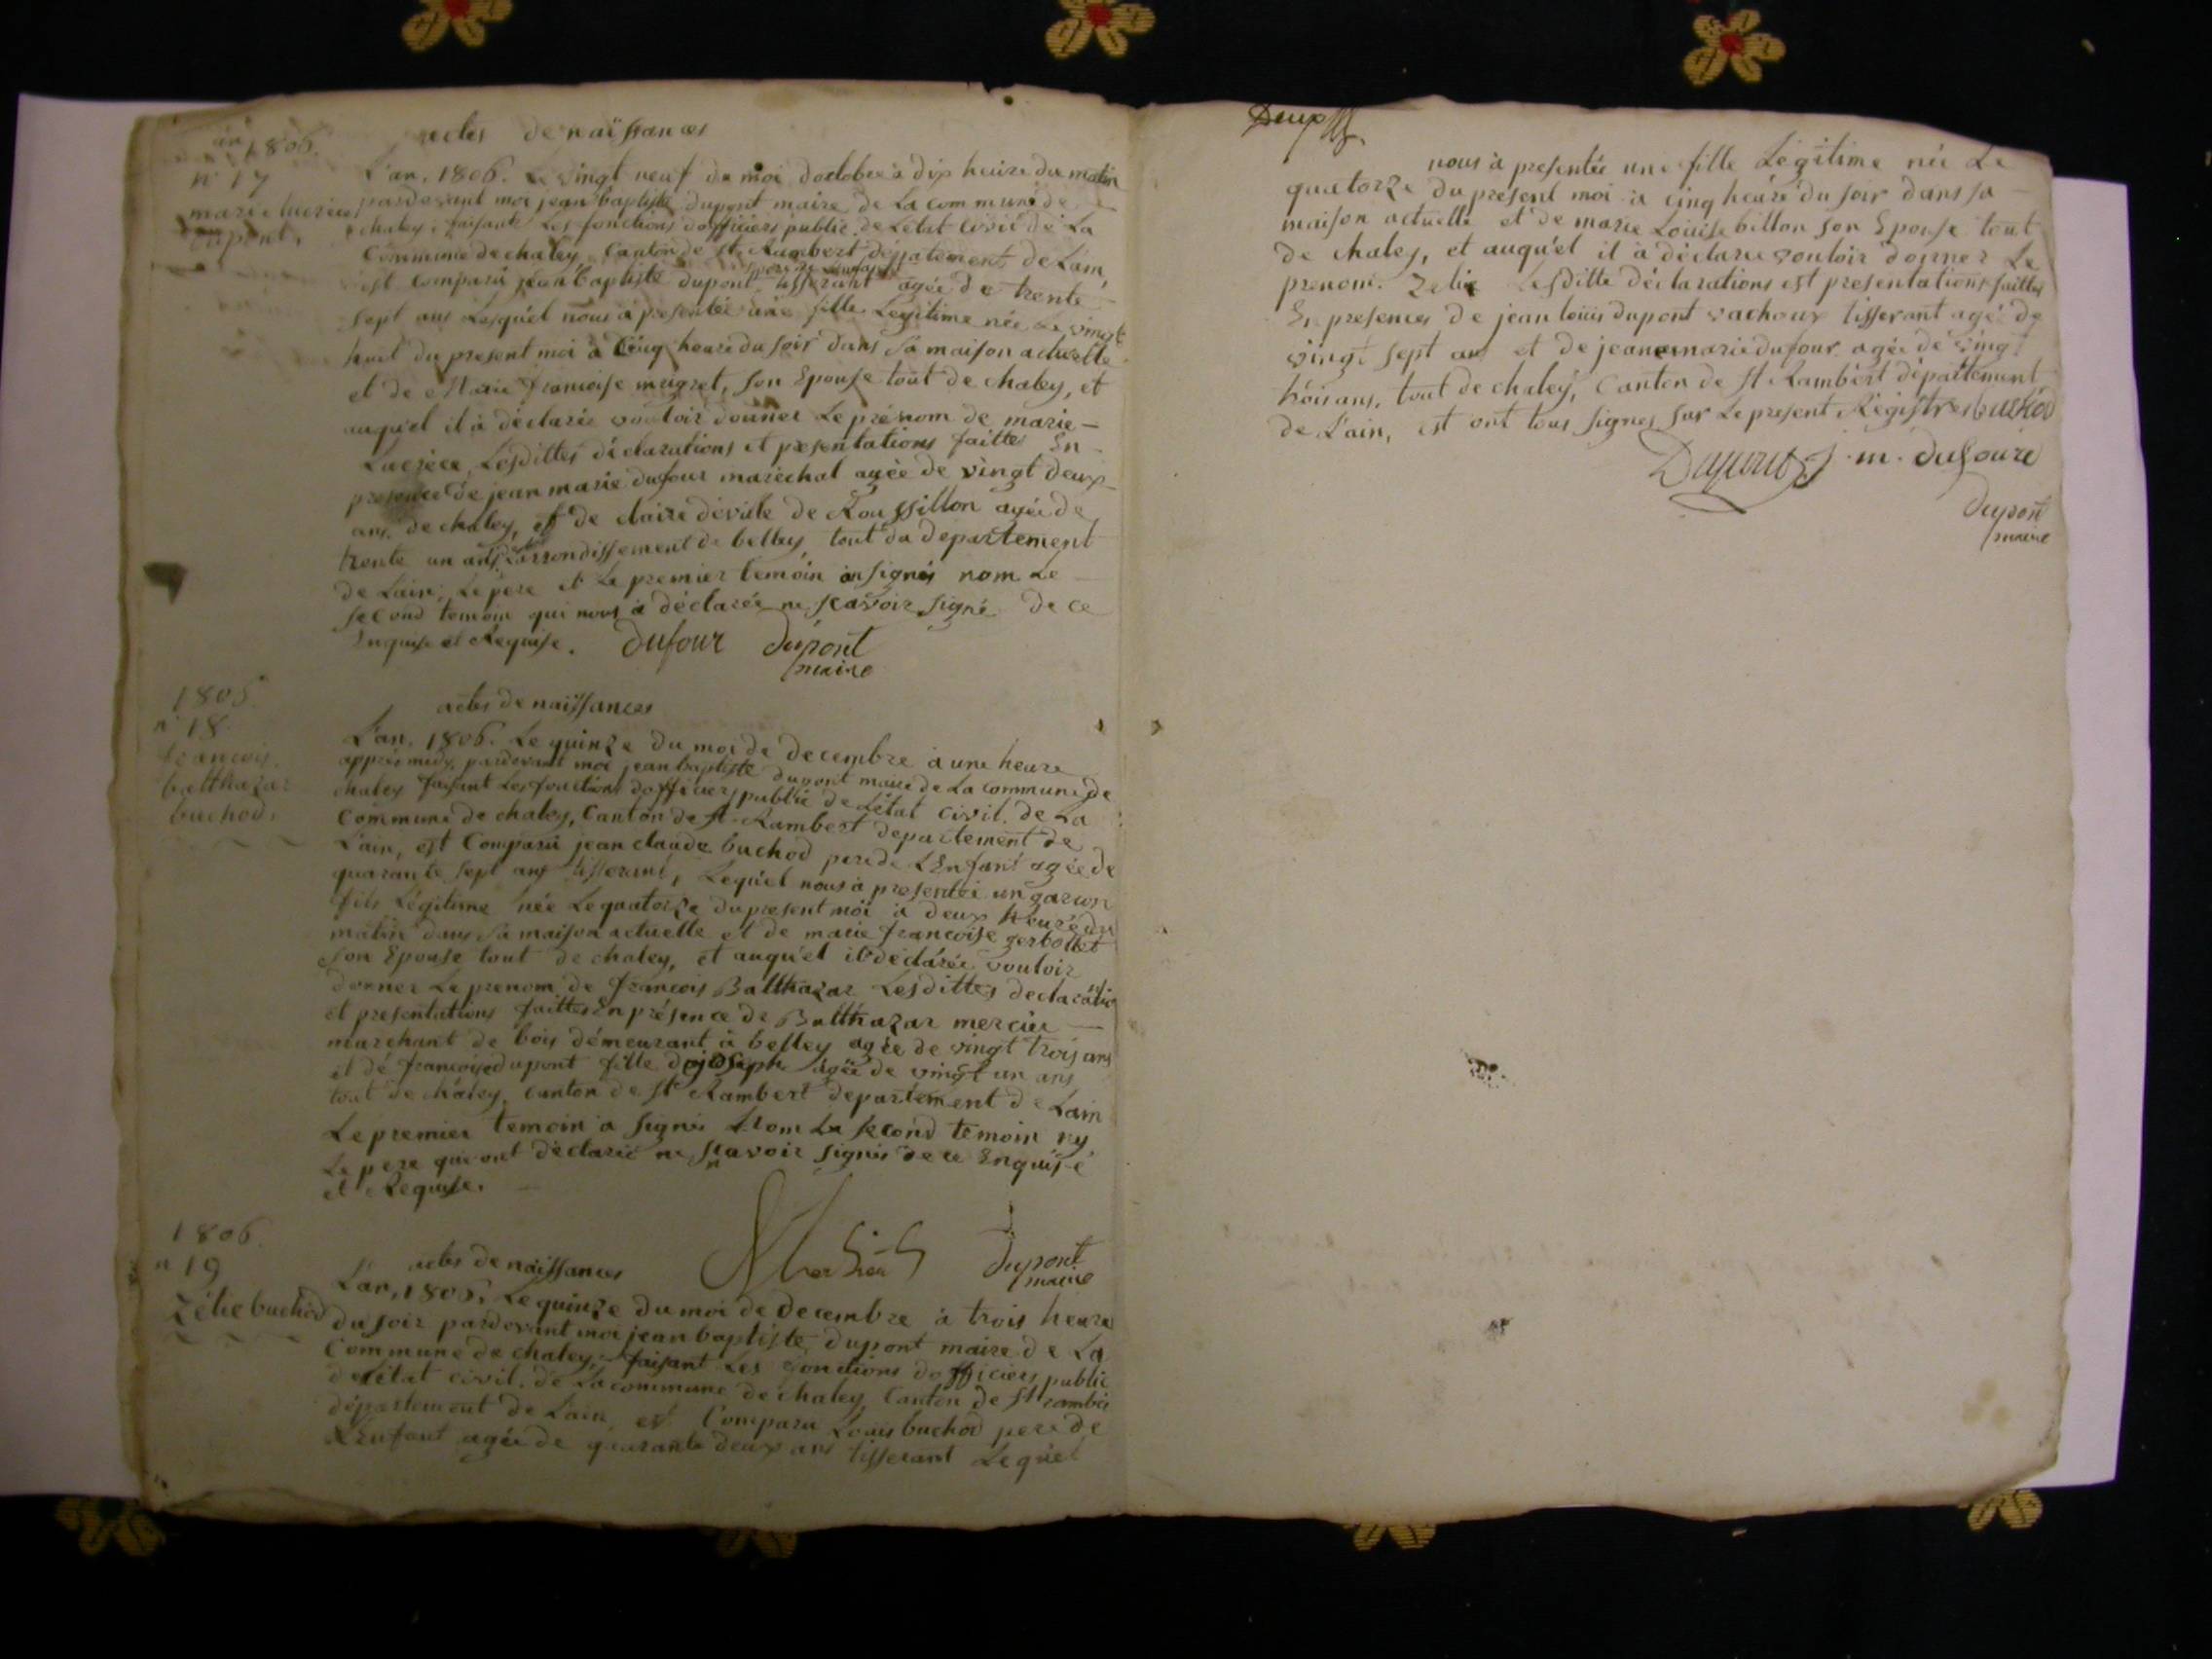 an 1806.
n° 17
marie lucrèce
dupont,
actes de naissances
L'an, 1806. Le vingt neuf du moi doctobre à dix heure du matin
pardevant moi jean baptiste dupont maire de La commune de
chaley, faisante Les fonctions dofficiers public de Létat civil de La
Commune de chaley Canton de st Rambert département de Lain,
est Comparü jean baptiste dupont tisserant agée de trente
sept ans Lesquél nous à presentée une fille Legitime née Le vingt
huit du present moi à cinq heure du soir dans sa maison actuelle
et de Marie francoise mugnet, son Epouse tout de chaley, et
auquél il à déclarée vouloir donner Le prénom de marie-
Lucrèce, Lesdittes déclarations et presentations faittes En-
presence de jean marie dufour maréchal agée de vingt deux
ans, de chaley, et de claire deville de Roussillon agée de
trente un ans, arrondissement de belley, tout du departement
de Lain; Le pere et Le premier temoin on signés nom Le
second temoin qui nous à déclarée ne scavoir signé de ce
Enquise et Requise. Dufour dupont
maire
1806
n° 18
francois
balthazar
buchod,
actes de naissances
L'an, 1806. Le quinze du moi de decembre à une heure
apprés midy, pardevant moi jean baptiste dupont maire de La commune de
chaley faisant Les fonctions dofficiers public de Létat civil. de La
Commune de chaley, Canton de st Rambert departement de
Lain, est Comparü jean claude buchod pere de LEnfant agée de
quarante sept ans tisserant, Lequél nous à presentée un garcon
fils Légitime née Le quatorze du present moi à deux heure du
matin dans sa maison actuelle et de marie francoise gerbollet
son Epouse tout de chaley, et auquél il déclarée vouloir
donner Le prenom de francois Balthazar Lesdittes declaration
et presentations faittes En présence de Balthazar mercier
marchant de bois démeurant à belley agée de vingt trois ans
et dé francoise dupont fille de joseph agée de vingt un ans
tout de chaley, canton de st Rambert departement de Lain
Le premier temoin a signé Nom Le second temoin ny
Le pere qui ont déclaré ne scavoir signés de ce Enquise
et Requise.
dupont
maire
1806
n° 19
Zélie buchod
actes de naissances
L'an, 1806, Le quinze du moi de decembre à trois heure
du soir pardevant moi jean baptiste dupont maire de La
Commune de chaley, faisant Les fonctions dofficiers public
de Létat civil. de La commune de chaley Canton de st rambert
département de Lain, est Comparu Louis buchod pere de
LEnfant agée de quarante deux ans tisserant Lequél
Deux
nous à presentée une fille Légitime née Le
quatorze du present moi à cinq heure du soir dans sa
maison actuelle et de marie Louise billon son Epouse tout
de chaley, et auquél il à déclarée vouloir donner Le
prenom. Zelie Lesditte déclarations est presentations faittes
En presences de jean louis dupont vachoux tisserant agé de
vingt sept ans et de jeanemarie dufour agée de vingt
trois ans, tout de chaley, Canton de st Rambert département
de Lain, est ont tous signés sur Le present Régistres buchod
Dupont j. m. dufoure
dupont
maire